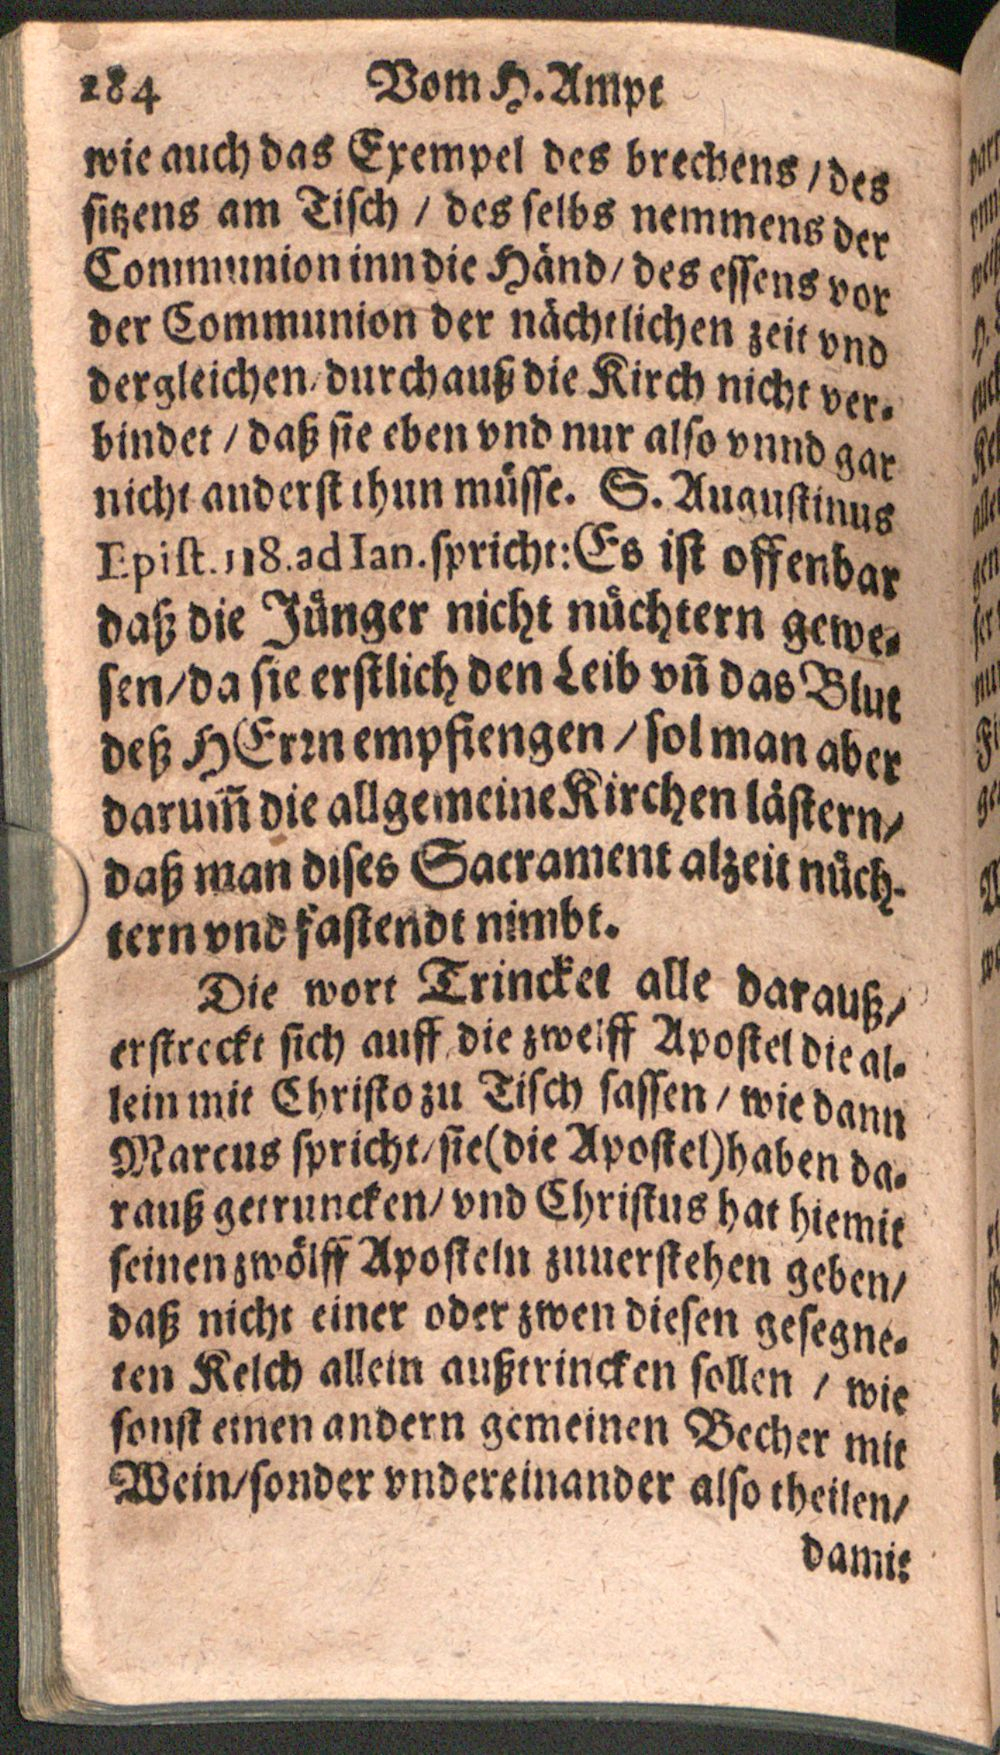 284 Vom H. Ampt
wie auch das Exempel des brechens / des
sitzens am Tisch / des selbs nemmens der
Communion inn die Händ / des essens vor
der Communion der nächtlichen zeit vnd
dergleichen / durchauß die Kirch nicht ver-
bindet / daß sie eben vnd nur also vnnd gar
nicht anderst thun müsse. S. Augustinus
Epist. 118. ad Ian. spricht: Es ist offenbar
daß die Jünger nicht nüchtern gewe-
sen / da sie erstlich den Leib vñ das Blut
deß HErrn empfiengen / sol man aber
darum̃ die allgemeine Kirchen lästern /
daß man dises Sacrament alzeit nüch-
tern vnd fastendt nimbt.
Die wort Trincket alle darauß /
erstreckt sich auff die zwelff Apostel die al-
lein mit Christo zu Tisch sassen / wie dann
Marcus spricht / sie (die Apostel) haben da-
rauß getruncken / vnd Christus hat hiemit
seinen zwölff Aposteln zuuerstehen geben /
daß nicht einer oder zwen diesen gesegne-
ten Kelch allein außtrincken sollen / wie
sonst einen andern gemeinen Becher mit
Wein / sonder vndereinander also theilen /
damit